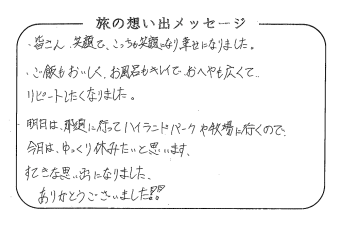 旅の想い出メッセージ
・皆さん、笑顔で、こっちも笑顔になり幸せになりました。
・ご飯もおいしく、お風呂もキレイで、おへやも広くて
リピートしたくなりました。
・明日は、那須に行ってハイランドパークや牧場に行くので、
今日は、ゆっくり休みたいと思います、
すてきな思い出になりました、
ありがとうございました!!